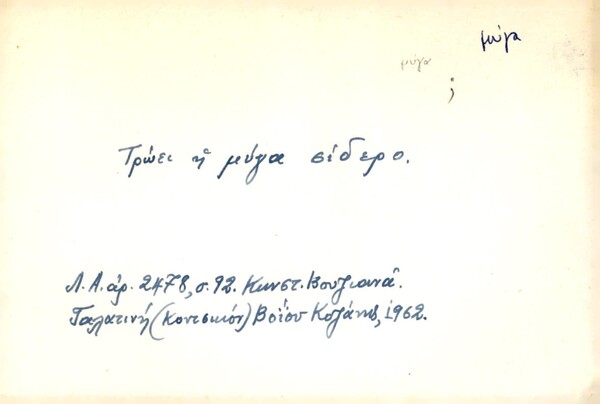 μύγα
μύγα
;
Τρώει ἡ μύγα σίδερο.
Λ. Α. ἀρ. 2478, σ. 92. Κωνστ. Βουζιανᾶ.
Γαλατινή (Κοντσικιόν) Βοΐου Κοζάνης, 1962.